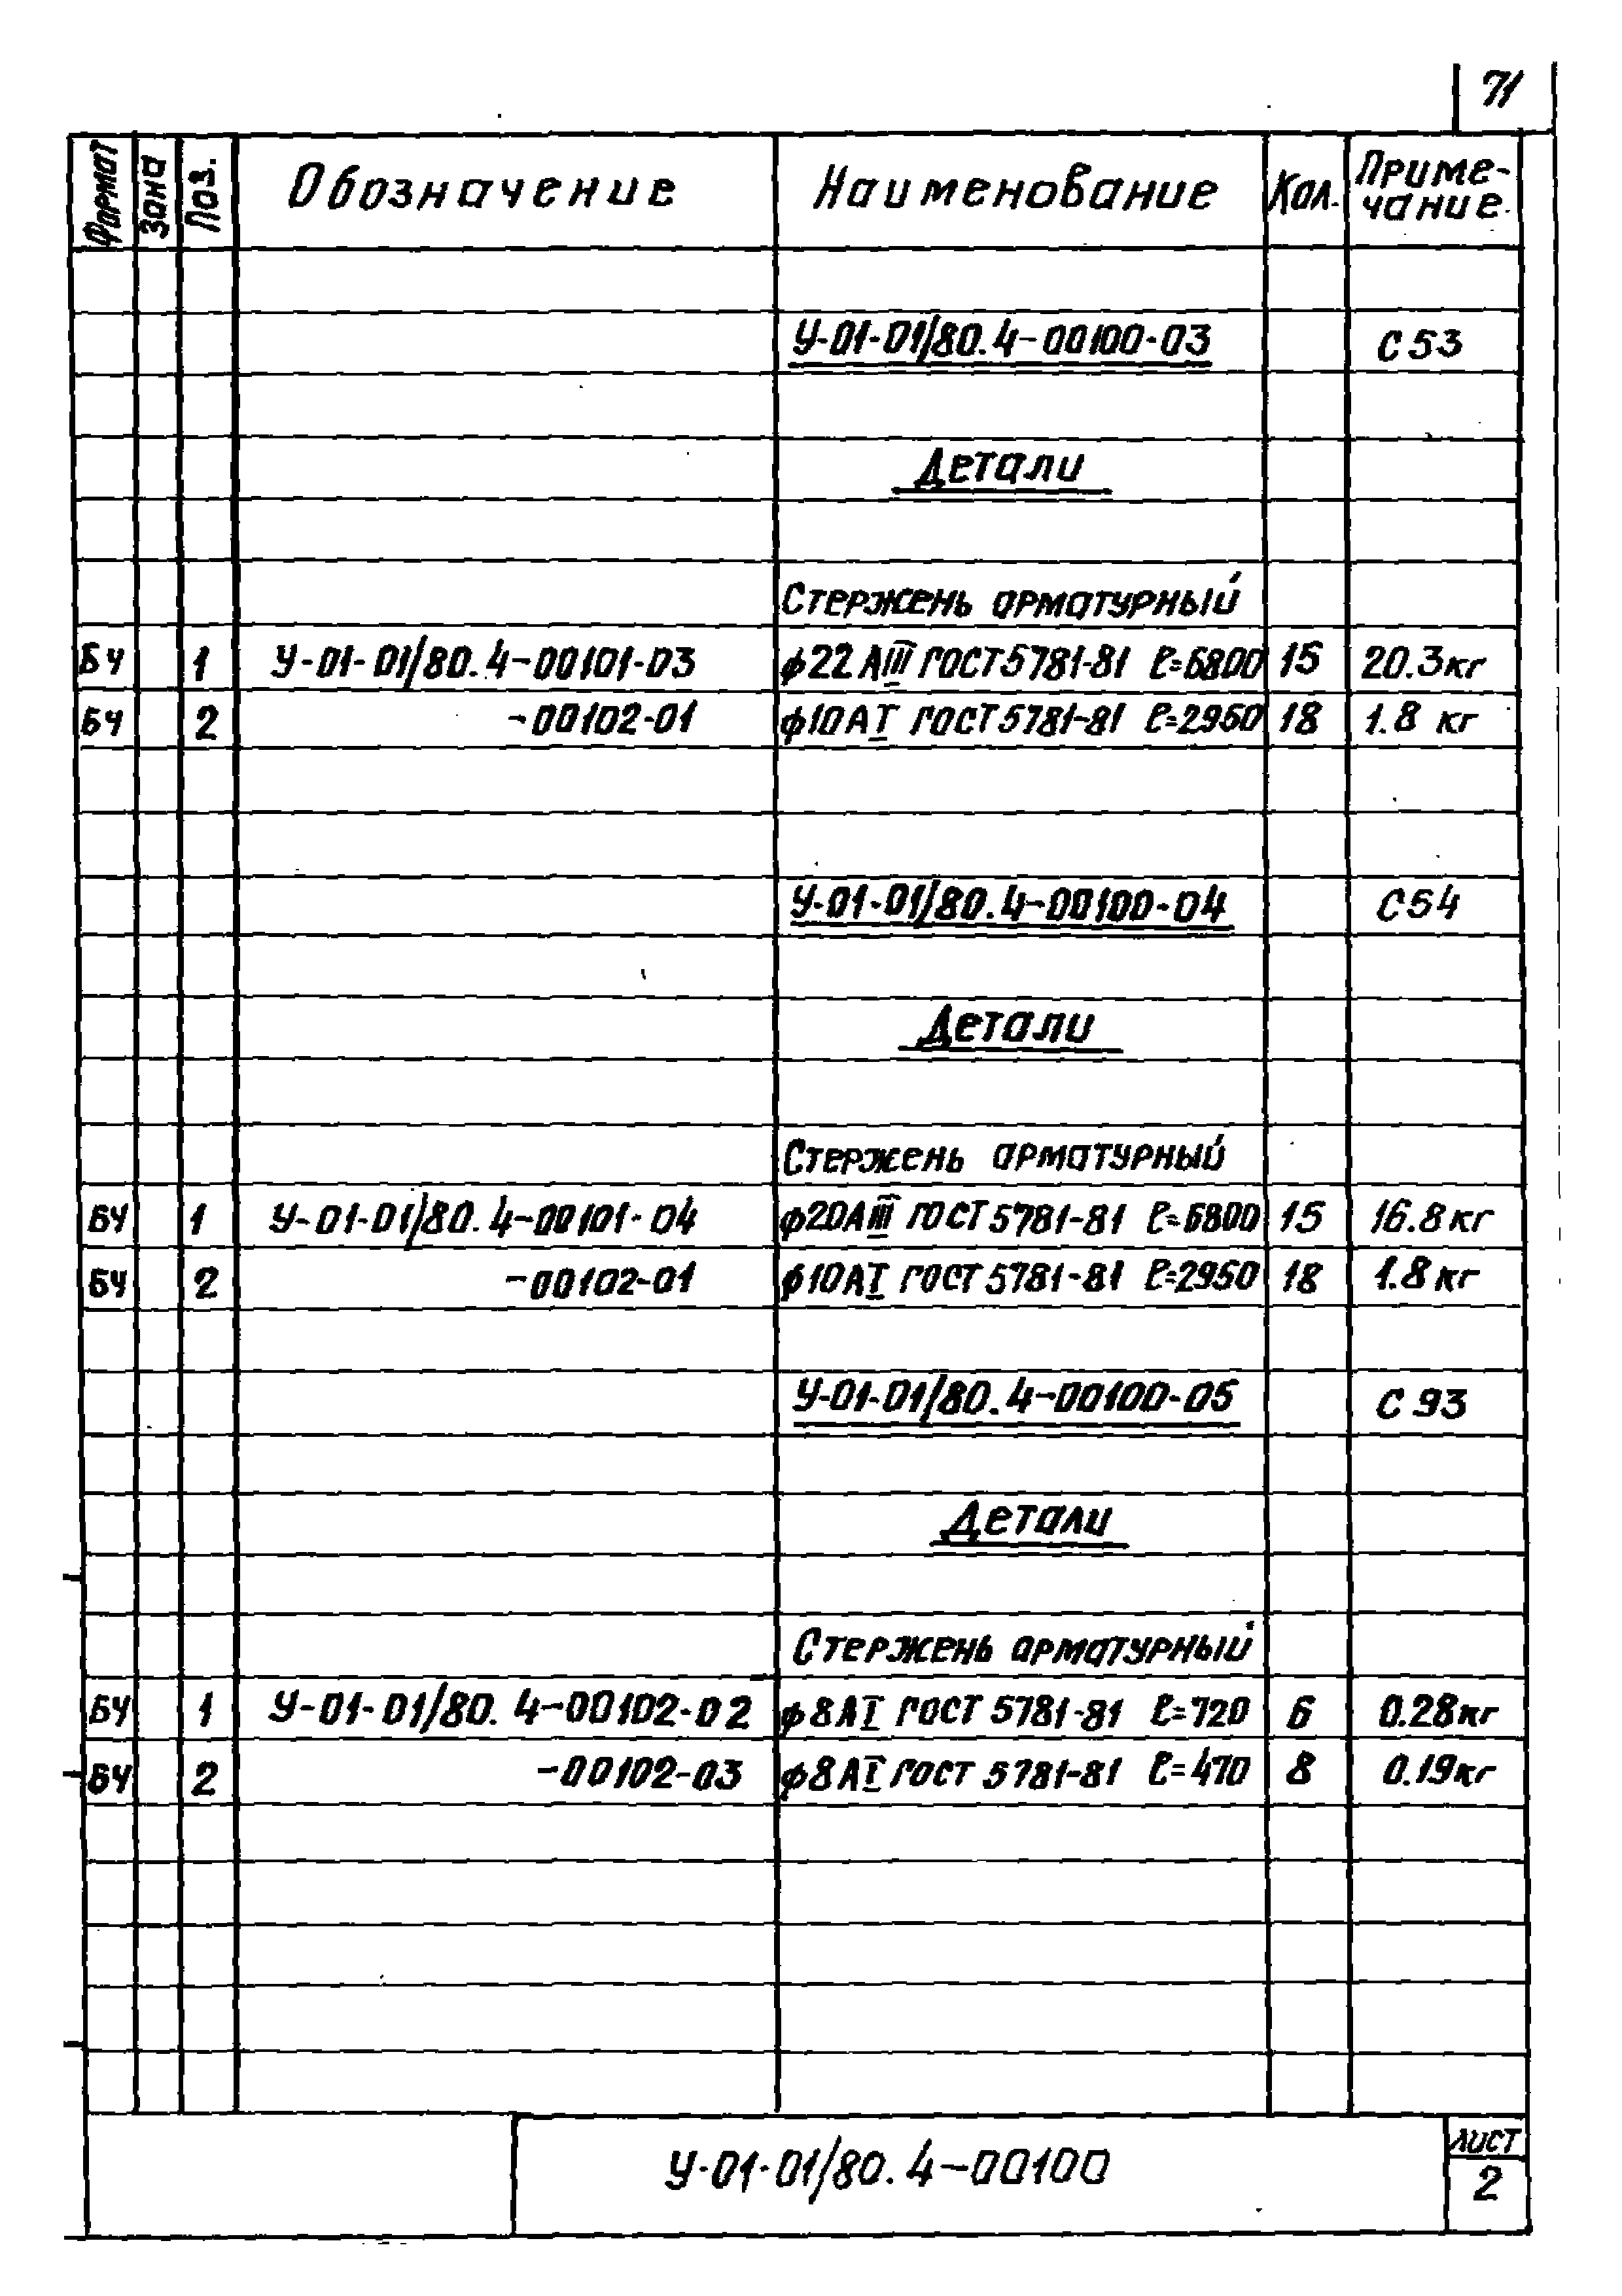 71
Формат Зона Поз. Обозначение Наименование Кол. Приме-
чание
У-01-01/80.4-00100-03 С 53
Детали
Стержень арматурный
БЧ 1 У-01-01/80.4-00101-03 ϕ22 АIII ГОСТ 5781-81 ℓ=6800 15 20.3кг
БЧ 2 -00102-01 ϕ10 АI ГОСТ 5781-81 ℓ=2950 18 1.8 кг
У-01-01/80.4-00100-04 С54
Детали
Стержень арматурный
БЧ 1 У-01-01/80.4-00101-04 ϕ20АIII ГОСТ 5781-81 ℓ=6800 15 16.8кг
БЧ 2 -00102-01 ϕ10АI ГОСТ 5781-81 ℓ=2950 18 1.8кг
У-01-01/80.4-00100-05 С 93
Детали
Стержень арматурный
БЧ 1 У-01-01/80.4-00102-02 ϕ8АI ГОСТ 5781-81 ℓ=720 6 0.28кг
БЧ 2 -00102-03 ϕ8АI ГОСТ 5781-81 ℓ=470 8 0.19кг
У-01-01/80.4-00100
лист
2